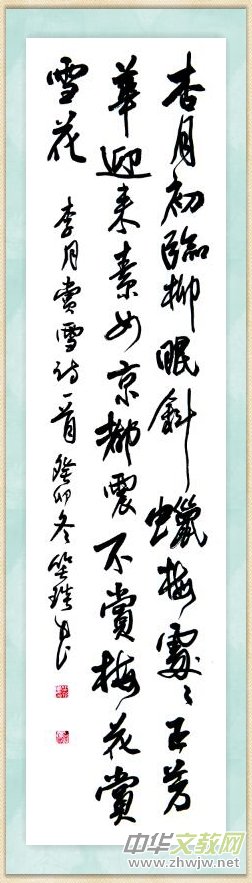 杏月初临柳眠斜蜡梅处处正芳
华迎来素女京都震不赏梅花赏
雪花
李月赏雪诗一首 癸卯冬
中华文教网
www.zhwjw.net